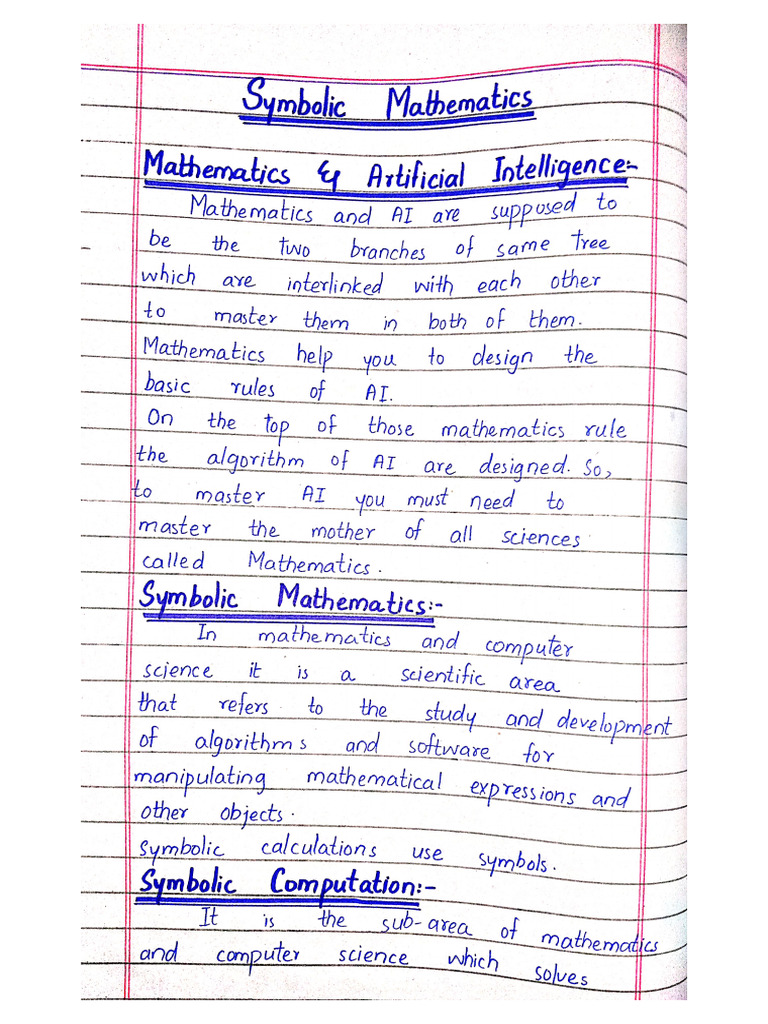 Symbolic Mathematics
Mathematics & Artificial Intelligence:-
Mathematics and AI are supposed to
be the two branches of same tree
which are interlinked with each other
to master them in both of them.
Mathematics help you to design the
basic rules of AI.
On the top of those mathematics rule
the algorithm of AI are designed. So,
to master AI you must need to
master the mother of all sciences
called Mathematics.
Symbolic Mathematics:-
In mathematics and computer
science it is a scientific area
that refers to the study and development
of algorithms and software for
manipulating mathematical expressions and
other objects.
symbolic calculations use symbols.
Symbolic Computation:-
It is the sub-area of mathematics
and computer science which solves